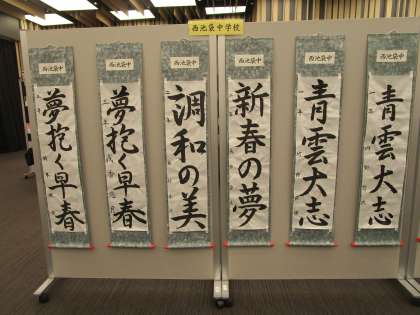 西池袋中学校
西池袋中
夢抱く早春
西池袋中
夢抱く早春
西池袋中
調和の美
西池袋中
新春の夢
西池袋中
青雲大志
西池袋中
青雲大志